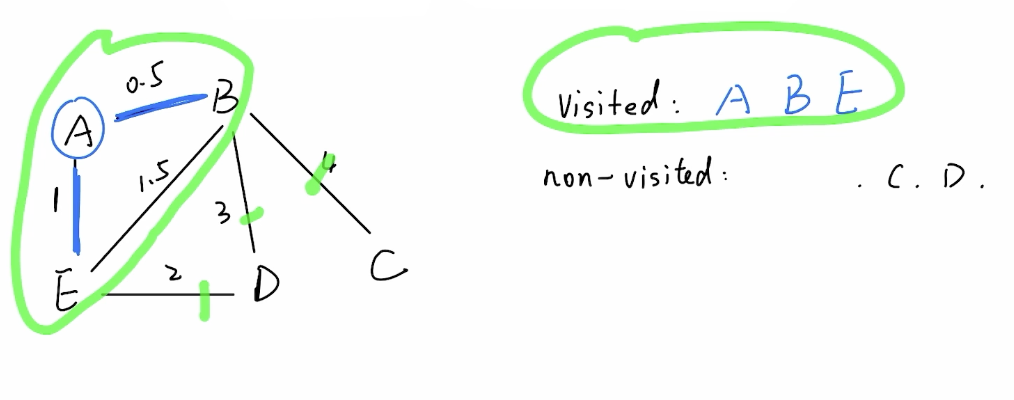 0.5
B
A
1
1.5
4
3
E
2
D
C
Visited: A B E
non-visited: . C. D.